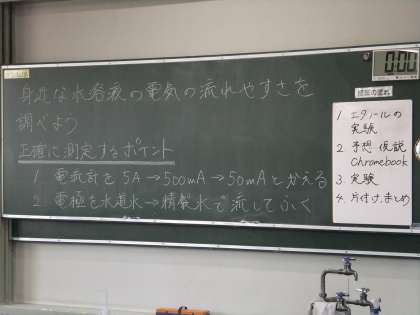 身近な水溶液の電気の流れやすさを
調べよう
正確に測定するポイント
1. 電流計を5A→500mA→50mAとかえる
2. 電極を水道水→精製水で流してふく
0:00
1. エタノールの
実験
2. 予想 仮説
Chromebook
3. 実験
4. 片付け、まとめ